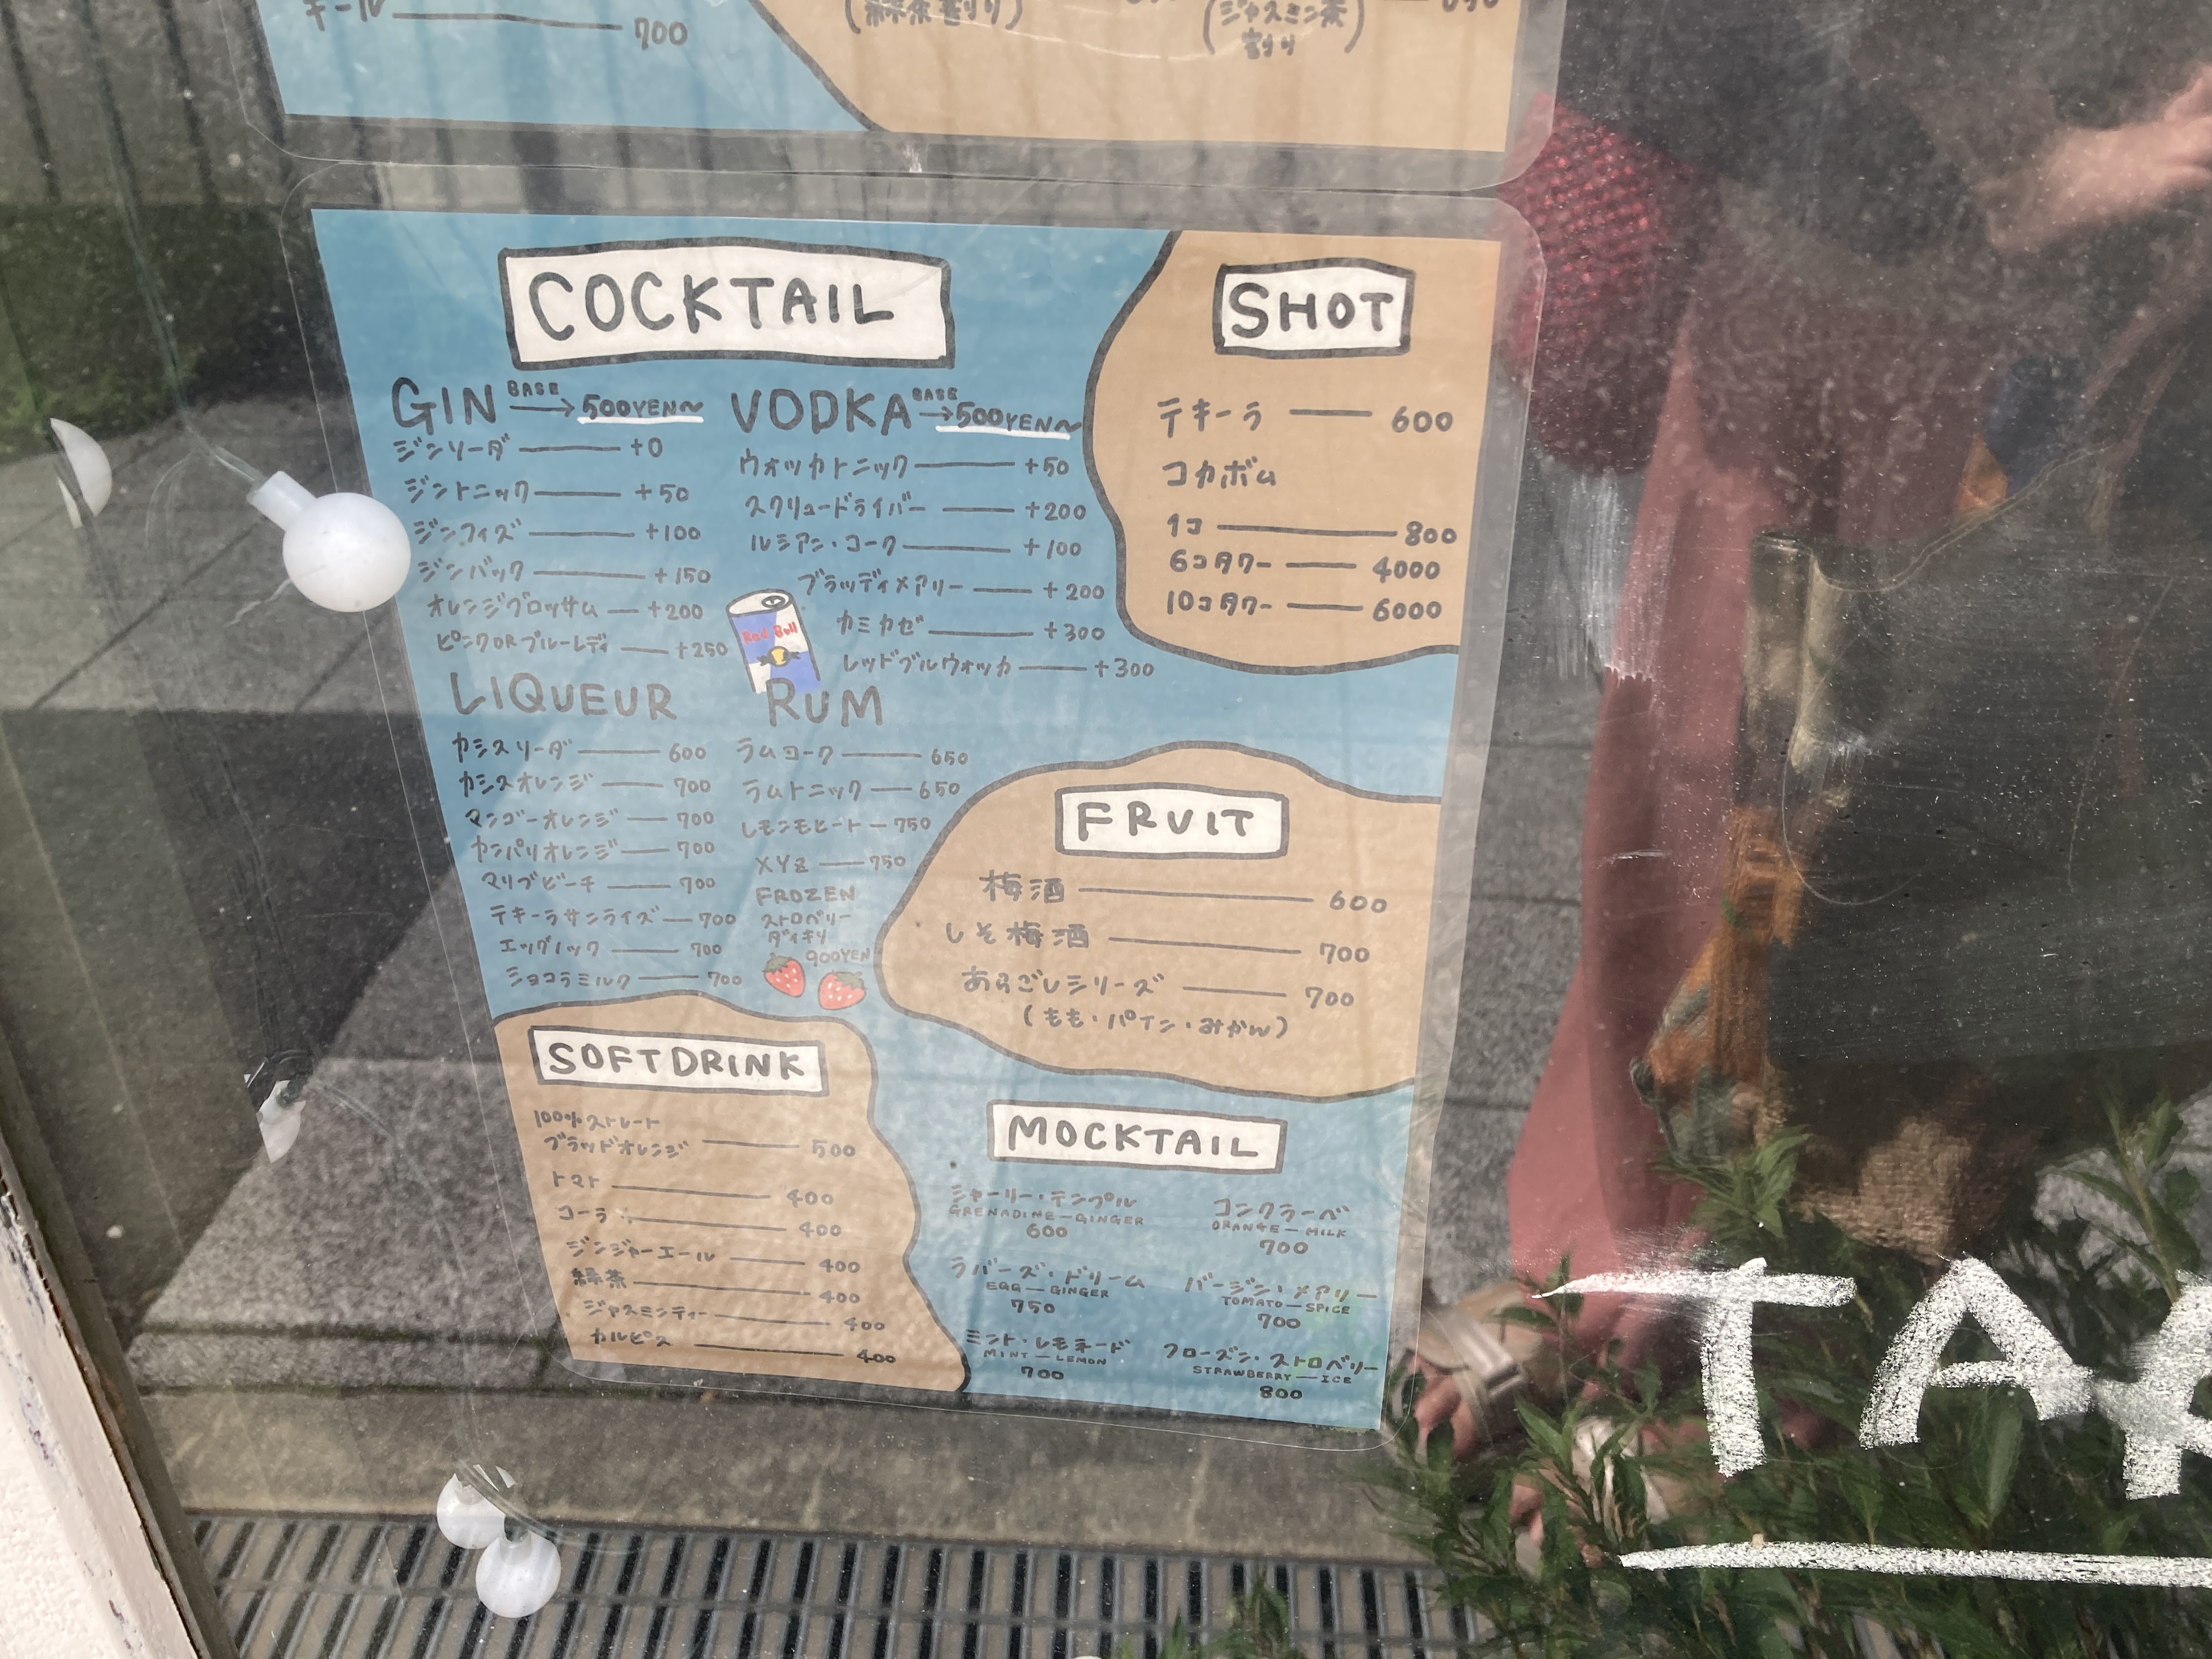 キール 700
(緑茶割り)
(ジャスミン茶
割り)
COCKTAIL
GIN BASE → 500YEN~
ジンソーダ +0
ジントニック +50
ジンフィズ +100
ジンバック +150
オレンジブロッサム +200
ピンクORブルーレディ +250
VODKA BASE → 500YEN~
ウォッカトニック +50
スクリュードライバー +200
ルシアン・コーク +100
ブラッディメアリー +200
カミカゼ +300
レッドブルウォッカ +300
Red Bull
LIQUEUR
カシスソーダ 600
カシスオレンジ 700
マンゴーオレンジ 700
カンパリオレンジ 700
マリブビーチ 700
テキーラサンライズ 700
エッグノック 700
ショコラミルク 700
RUM
ラムコーク 650
ラムトニック 650
レモンモヒート 750
XYZ 750
FROZEN
ストロベリー
ダイキリ
900YEN
SHOT
テキーラ 600
コカボム
1コ 800
6コタワー 4000
10コタワー 6000
FRUIT
梅酒 600
しそ梅酒 700
あらごしシリーズ 700
(もも・パイン・みかん)
SOFTDRINK
100%ストレート
ブラッドオレンジ 500
トマト 400
コーラ 400
ジンジャーエール 400
緑茶 400
ジャスミンティー 400
カルピス 400
MOCKTAIL
シャーリー・テンプル
GRENADINE—GINGER
600
コンクラーベ
ORANGE—MILK
700
ラバーズ・ドリーム
EGG—GINGER
750
バージン・メアリー
TOMATO—SPICE
700
ミント・レモネード
MINT—LEMON
700
フローズン・ストロベリー
STRAWBERRY—ICE
800
TA